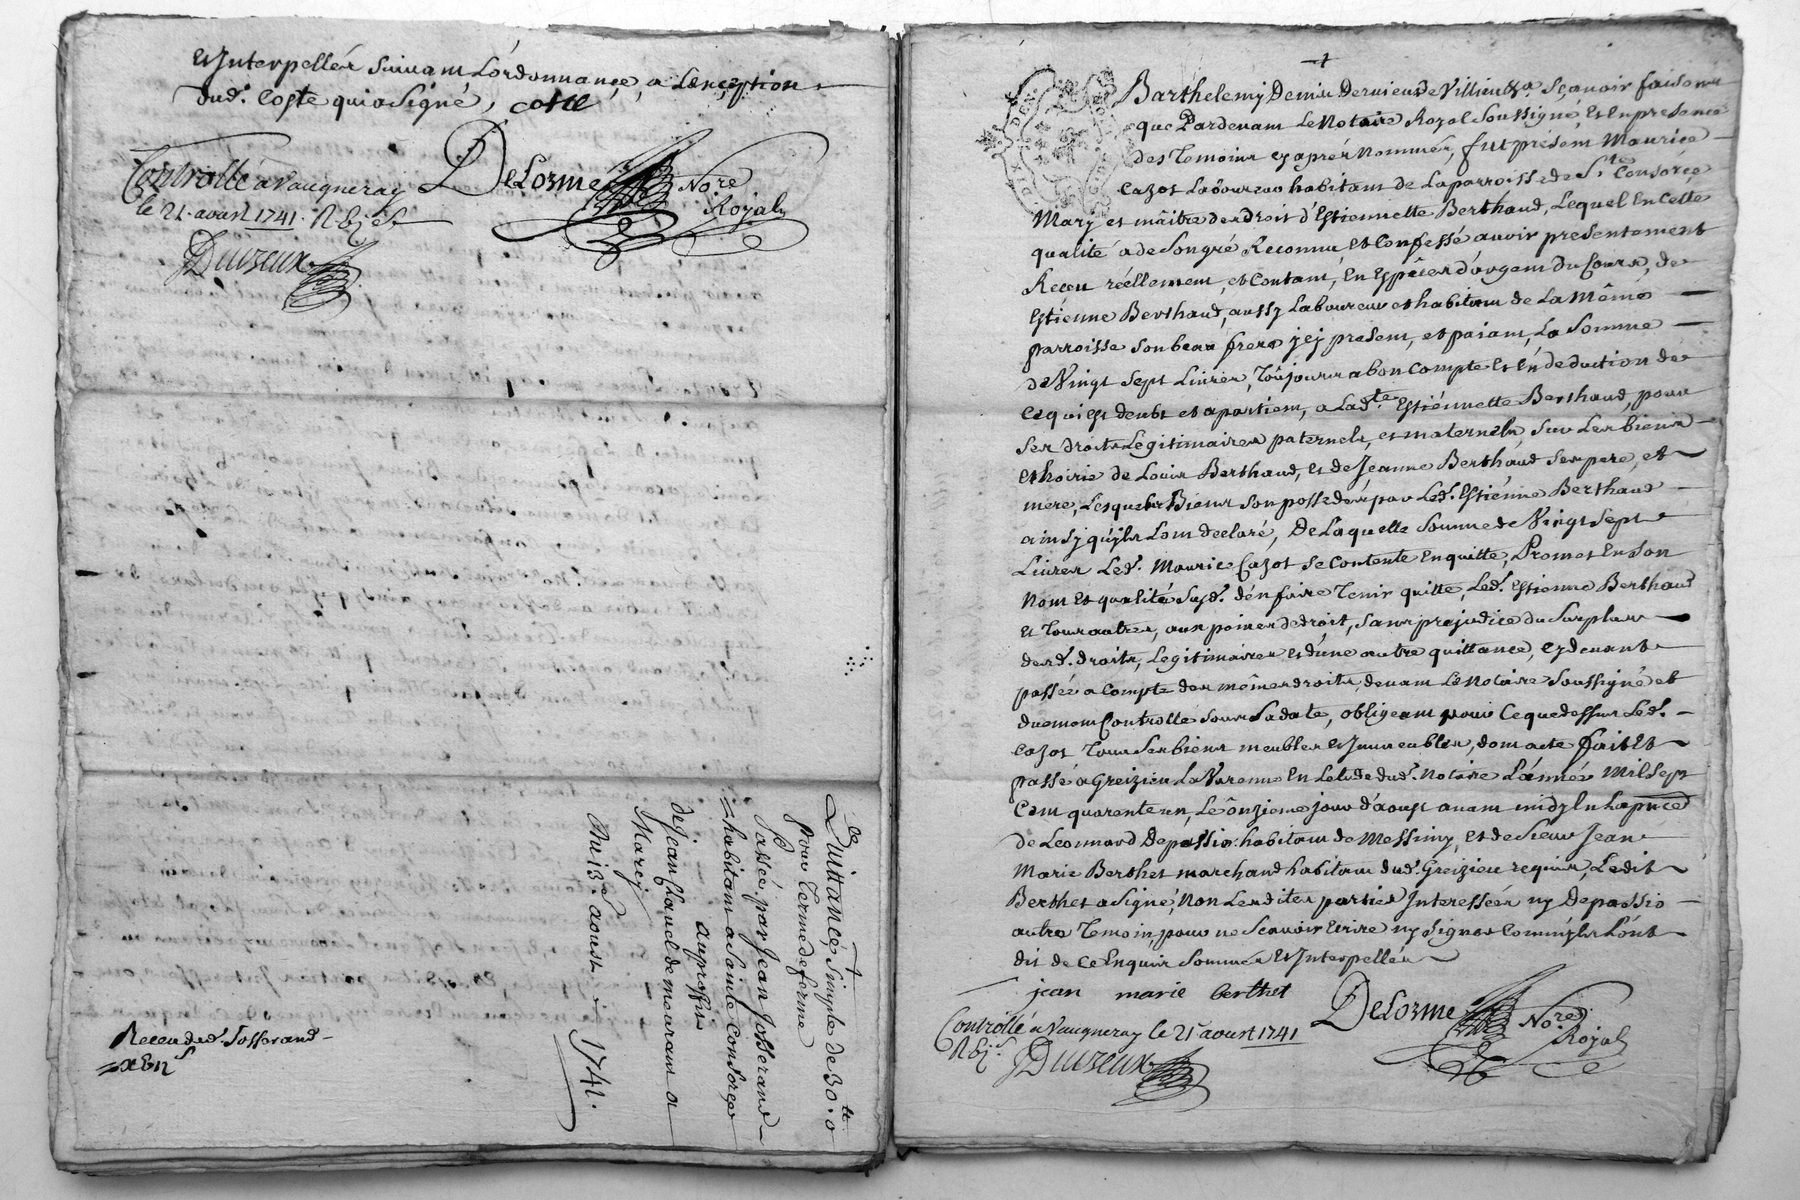 et Interpellés suivant L'ordonnance, a L'exception
dud. Coste qui a signé, coste
Controllé a Vaugneray
DeLorme Nore
Royal
le 21. aoust 1741.
Duvzeux
Quittance simple de 30.tt 0
pour terme de ferme
Passée par Jean Josserand
habitant a Sainte Consorce
au proffit
de Jean Claude demeurant a
Marcy
Du 13.e aoust
1741.
Receu dud. Josserand
+
Barthelemy Denis Dervieu de Villieu &a Sçavoir faisons
que Pardevant Le Notaire Royal Soussigné, Et En presence
des Temoins cy aprés Nommés, fut present Maurice
Cazot Laboureur habitant de La parroisse de Ste Consorce
Mary et maitre des droit d'Estiennette Berthaud, Lequel En cette
qualité a de Son gré Reconnu et Confessé avoir presentement
Receu réellement, et Contant, En Espéces d'argent du Cours, de
Estienne Berthaud, aussy Laboureur et habitant de La Même
parroisse Son beau frere jcj present, et paiant, La Somme
de Vingt Sept Livres, Toûjours a bon Compte Et En deduction de
Ce qui Est deubt et apartient, a Lad.te Estiennette Berthaud, pour
Ses droits Legitimaires paternels, et maternels, Sur Les biens
Et hoirie de Louis Berthaud, et de Jeanne Berthaud Ses pere, et
mere, Lesquels Biens Son possedés par Led. Estiénne Berthaud
ainsy qu'ils L'ont declaré, De Laquelle Somme de Vingt Sept
Livres Led. Maurice Cazot Se Contente En quitte, Promet En Son
Nom Et qualité Susd. d'En faire Tenir quitte, Led. Estienne Berthaud
Et Tous autres, aux peines de droit, Sans prejudice du Surplus
desd. droits, Legitimaires Et d'une autre quittance, cy devant
passée a Compte des mêmes droits, devant Le Notaire Soussigné et
duement Controllé Sous Sa date, obligeant pour Ce que dessus Led.
Cazot Tous Ses biens meubles et Immeubles, dont acte fait Et
passé a Greizieu La Varenne En Letude dud. Notaire L'année Mil Sept
Cent quarente un, Le ônzieme jour d'aoust avant midy En La pnce
de Leonnard Depassio habitant de Messimy, Et de Sieur Jean
Marie Berthet marchand habitant dud. Greizieu requis, Ledit
Berthet a Signé, Non Lesdites parties Interessées ny Depassio
autre Temoin, pour ne Scavoir Ecrire ny Signer Comm'ils L'ont
dit de Ce Enquis Sommés Et Interpellés
jean marie berthet
DeLorme Nore
Royal
Controllé a Vaugneray le 21 aoust 1741
Duvzeux